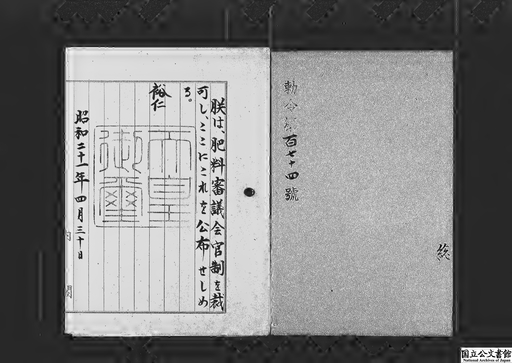 勅令第百七十四號
終
朕は、肥料審議会官制を裁
可し、ここにこれを公布せしめ
る。
裕仁
天皇
御璽
昭和二十一年四月三十日
国立公文書館
National Archives of Japan